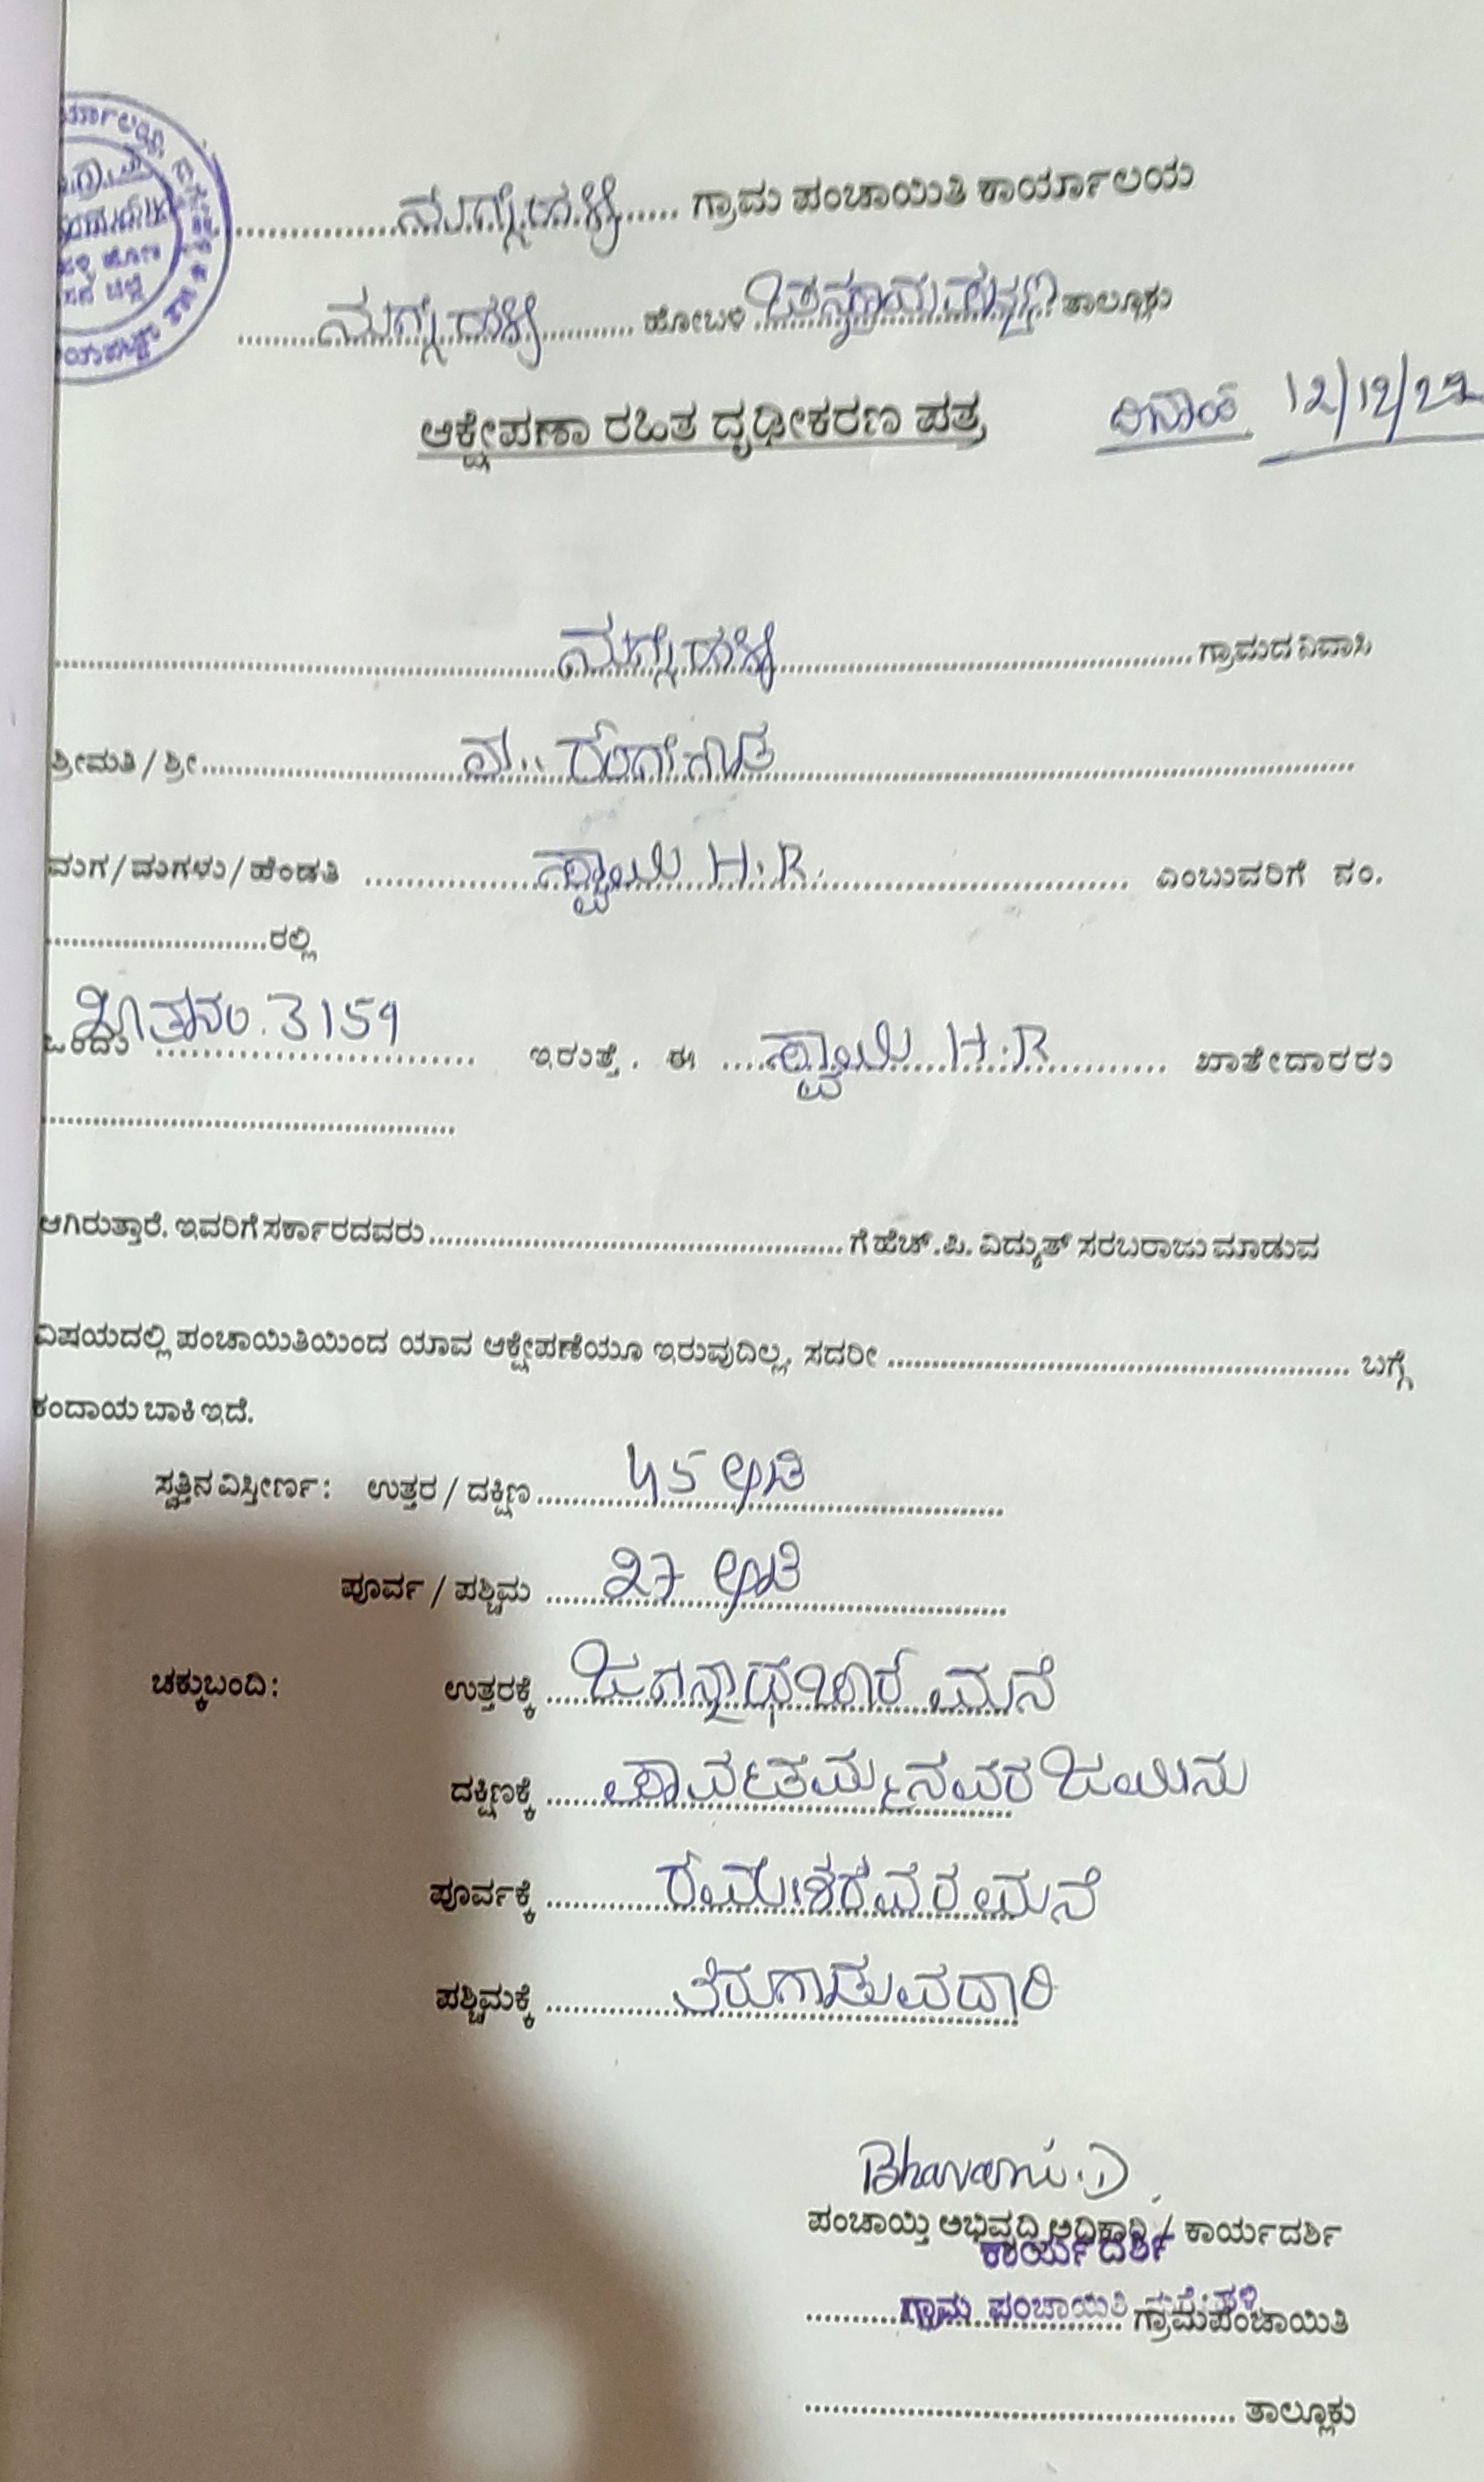 ನುಗ್ಗೇಹಳ್ಳಿ ಗ್ರಾಮ ಪಂಚಾಯಿತಿ ಕಾರ್ಯಾಲಯ
ನುಗ್ಗೇಹಳ್ಳಿ ಹೋಬಳಿ ಚನ್ನರಾಯಪಟ್ಟಣ ತಾಲ್ಲೂಕು
ಆಕ್ಷೇಪಣಾ ರಹಿತ ದೃಢೀಕರಣ ಪತ್ರ ದಿನಾಂಕ 12/12/22
ನುಗ್ಗೇಹಳ್ಳಿ ಗ್ರಾಮದ ನಿವಾಸಿ
ಶ್ರೀಮತಿ / ಶ್ರೀ ರಂಗೇಗೌಡ
ಮಗ / ಮಗಳು / ಹೆಂಡತಿ ಸ್ವಾಮಿ H.R. ಎಂಬುವರಿಗೆ ನಂ.
ರಲ್ಲಿ
ಒಂದು ಖಾತಾನಂ. 3159 ಇರುತ್ತೆ. ಈ ಸ್ವಾಮಿ H.R ಖಾತೇದಾರರು
ಆಗಿರುತ್ತಾರೆ. ಇವರಿಗೆ ಸರ್ಕಾರದವರು ಗೆ ಹೆಚ್.ಪಿ. ವಿದ್ಯುತ್ ಸರಬರಾಜು ಮಾಡುವ
ವಿಷಯದಲ್ಲಿ ಪಂಚಾಯಿತಿಯಿಂದ ಯಾವ ಆಕ್ಷೇಪಣೆಯೂ ಇರುವುದಿಲ್ಲ. ಸದರೀ ಬಗ್ಗೆ
ಕಂದಾಯ ಬಾಕಿ ಇದೆ.
ಸ್ವತ್ತಿನ ವಿಸ್ತೀರ್ಣ: ಉತ್ತರ / ದಕ್ಷಿಣ 45 ಅಡಿ
ಪೂರ್ವ / ಪಶ್ಚಿಮ 27 ಅಡಿ
ಚಕ್ಕುಬಂದಿ: ಉತ್ತರಕ್ಕೆ ಜಗನ್ನಾಥಚಾರ ಮನೆ
ದಕ್ಷಿಣಕ್ಕೆ ಪಾರ್ವತಮ್ಮನವರ ಜಮೀನು
ಪೂರ್ವಕ್ಕೆ ರಮೇಶರವರ ಮನೆ
ಪಶ್ಚಿಮಕ್ಕೆ ತಿರುಗಾಡುವದಾರಿ
Bhavani.D
ಪಂಚಾಯ್ತಿ ಅಭಿವೃದ್ಧಿ ಅಧಿಕಾರಿ / ಕಾರ್ಯದರ್ಶಿ
ಕಾರ್ಯದರ್ಶಿ
ಗ್ರಾಮ ಪಂಚಾಯಿತಿ
ಗ್ರಾಮಪಂಚಾಯಿತಿ
ತಾಲ್ಲೂಕು